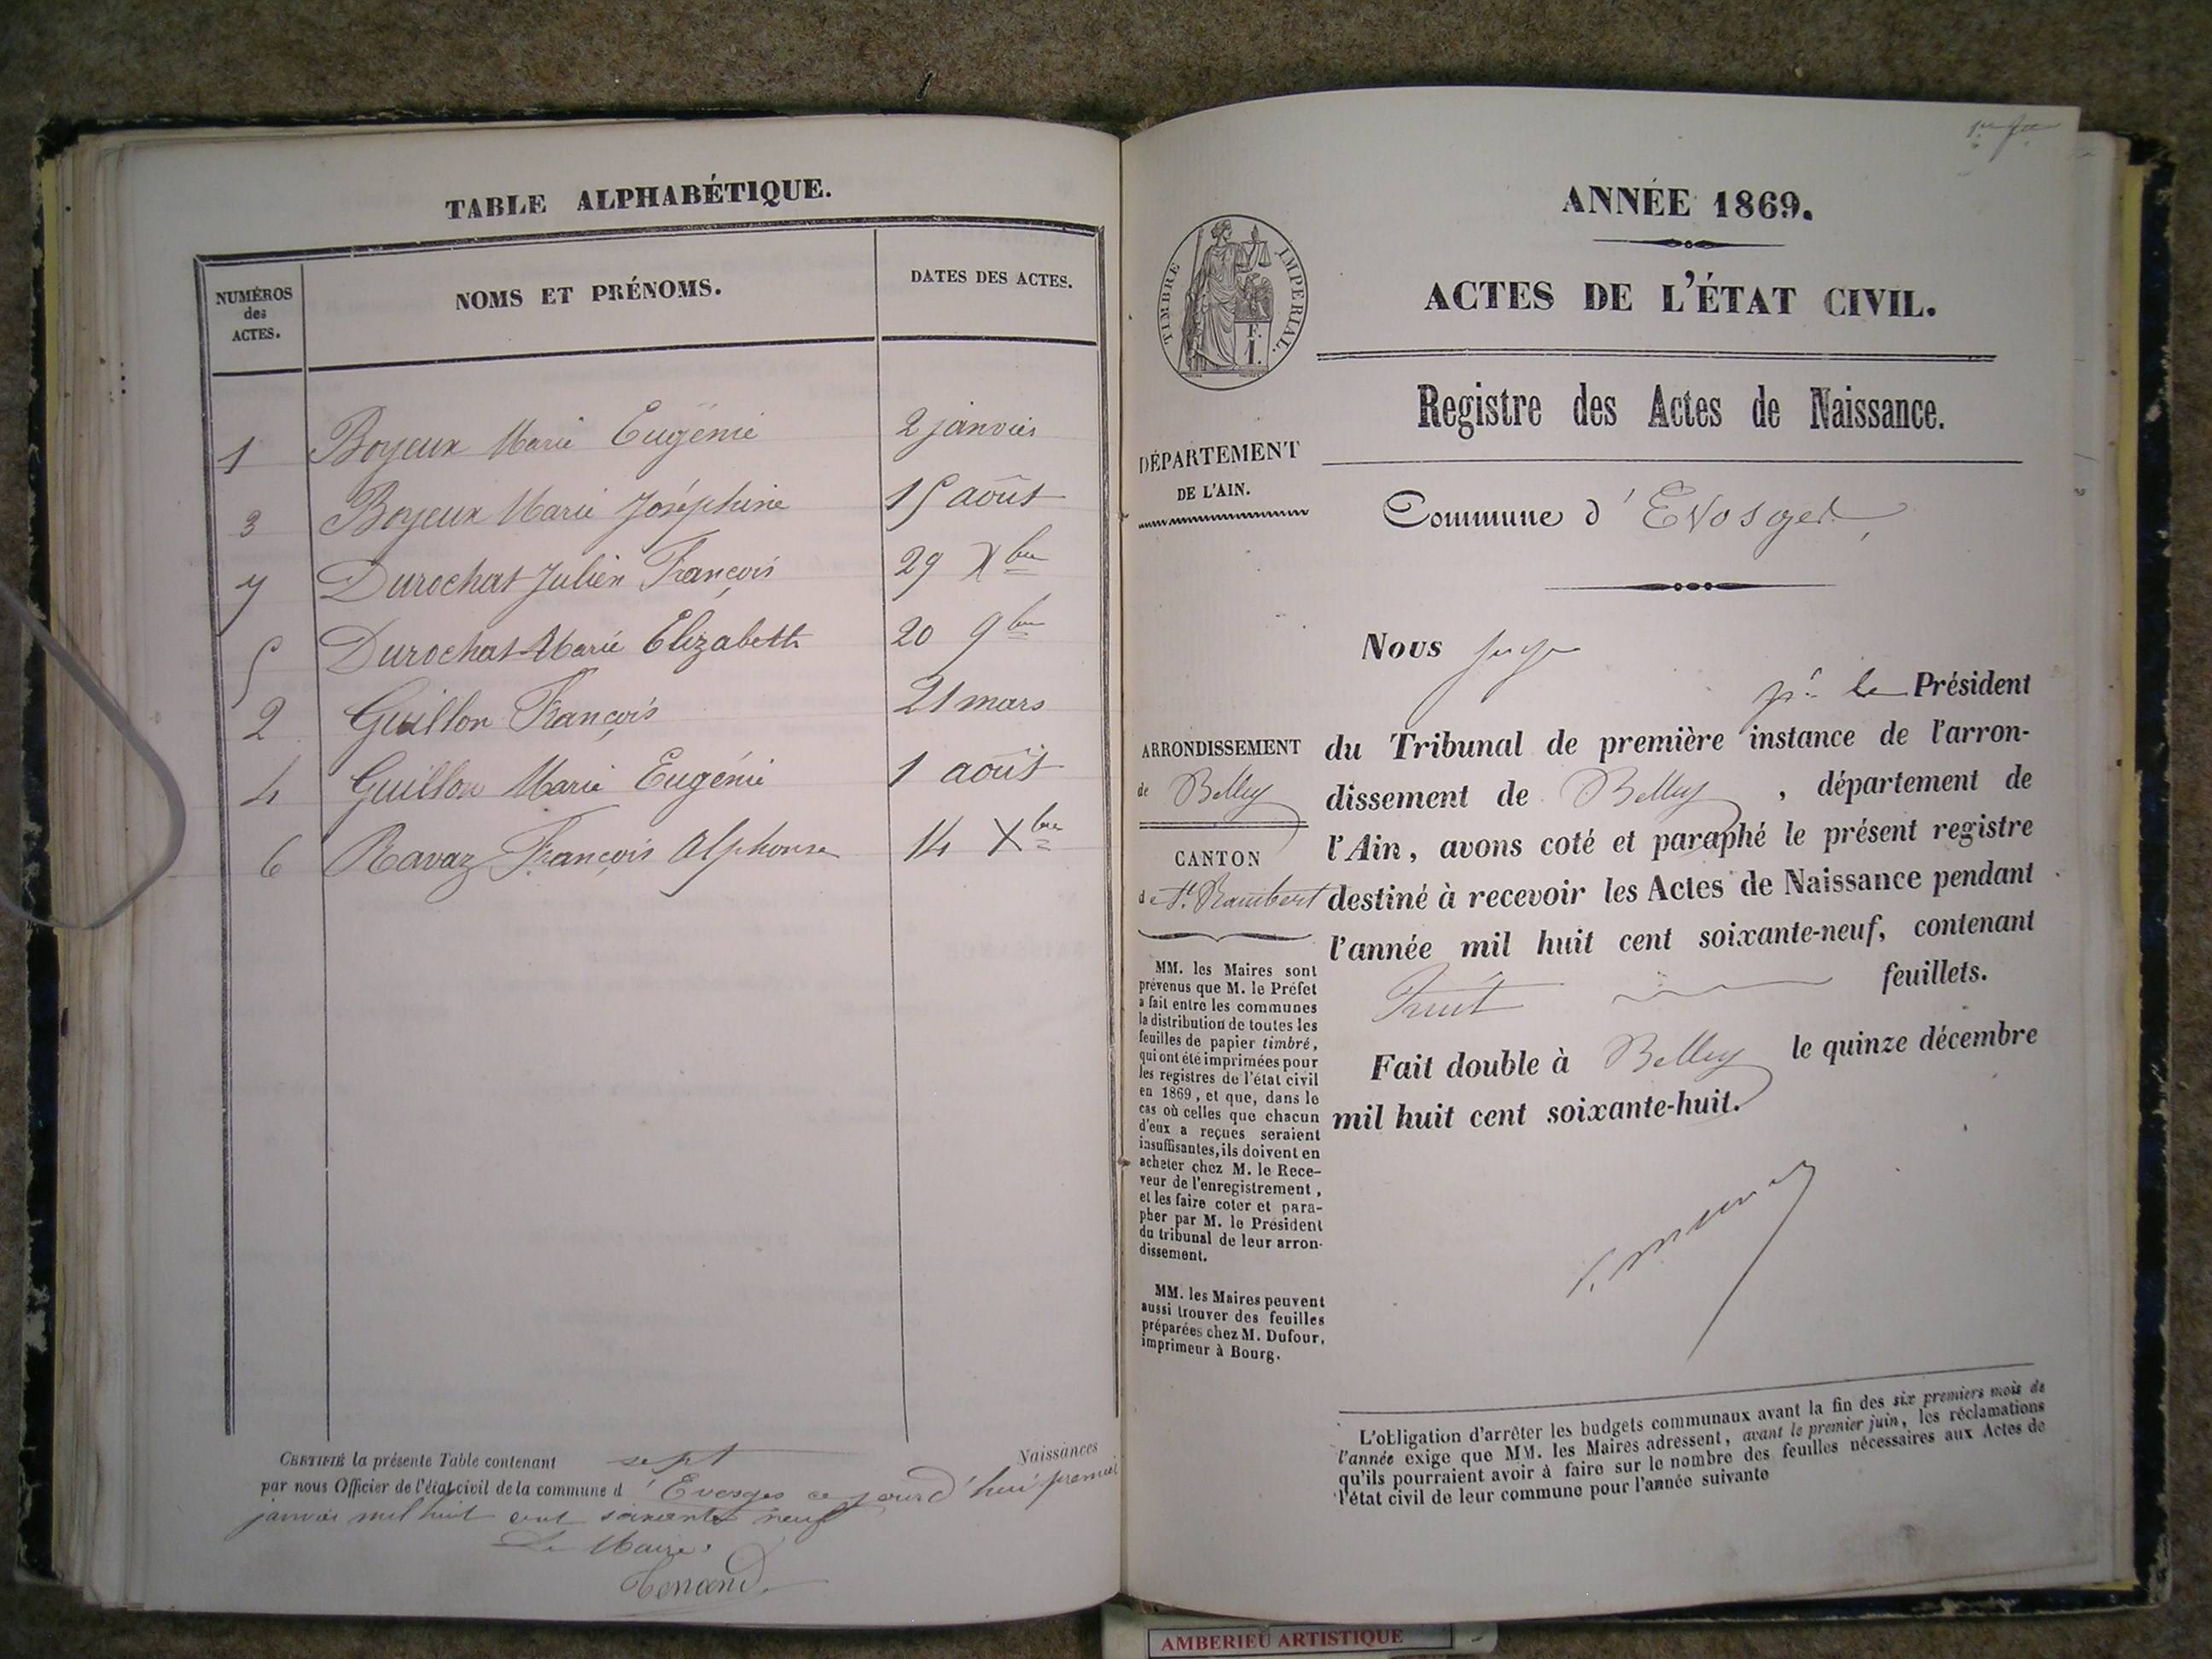 TABLE ALPHABÉTIQUE.
NUMÉROS des ACTES.
NOMS ET PRÉNOMS.
DATES DES ACTES.
1 Boyeux Marie Eugénie 2 janvier
3 Boyeux Marie Joséphine 15 août
7 Durochat Julien François 29 Xbre
5 Durochat Marie Elizabeth 20 9bre
2 Guillon François 21 mars
4 Guillon Marie Eugénie 1 août
6 Ravaz François Alphonse 14 Xbre
CERTIFIÉ la présente Table contenant sept Naissances
par nous Officier de l'état civil de la commune d'Evosges ce jourd'hui premier
janvier mil huit cent soixante neuf
Le Maire:
ANNÉE 1869.
ACTES DE L'ÉTAT CIVIL.
TIMBRE IMPERIAL.
F.
1.
Registre des Actes de Naissance.
DÉPARTEMENT
DE L'AIN.
Commune d'Evosges
Nous juge
pr le Président
ARRONDISSEMENT
de Belley
CANTON
de St. Rambert
du Tribunal de première instance de l'arron-
dissement de Belley, département de
l'Ain, avons coté et paraphé le présent registre
destiné à recevoir les Actes de Naissance pendant
l'année mil huit cent soixante-neuf, contenant
huit feuillets.
Fait double à Belley le quinze décembre
mil huit cent soixante-huit.
MM. les Maires sont
prévenus que M. le Préfet
a fait entre les communes
la distribution de toutes les
feuilles de papier timbré,
qui ont été imprimées pour
les registres de l'état civil
en 1869, et que, dans le
cas où celles que chacun
d'eux a reçues seraient
insuffisantes, ils doivent en
acheter chez M. le Rece-
veur de l'enregistrement,
et les faire coter et para-
pher par M. le Président
du tribunal de leur arron-
dissement.
MM. les Maires peuvent
aussi trouver des feuilles
préparées chez M. Dufour,
imprimeur à Bourg.
L'obligation d'arrêter les budgets communaux avant la fin des six premiers mois de
l'année exige que MM. les Maires adressent, avant le premier juin, les réclamations
qu'ils pourraient avoir à faire sur le nombre des feuilles nécessaires aux Actes de
l'état civil de leur commune pour l'année suivante
AMBERIEU ARTISTIQUE